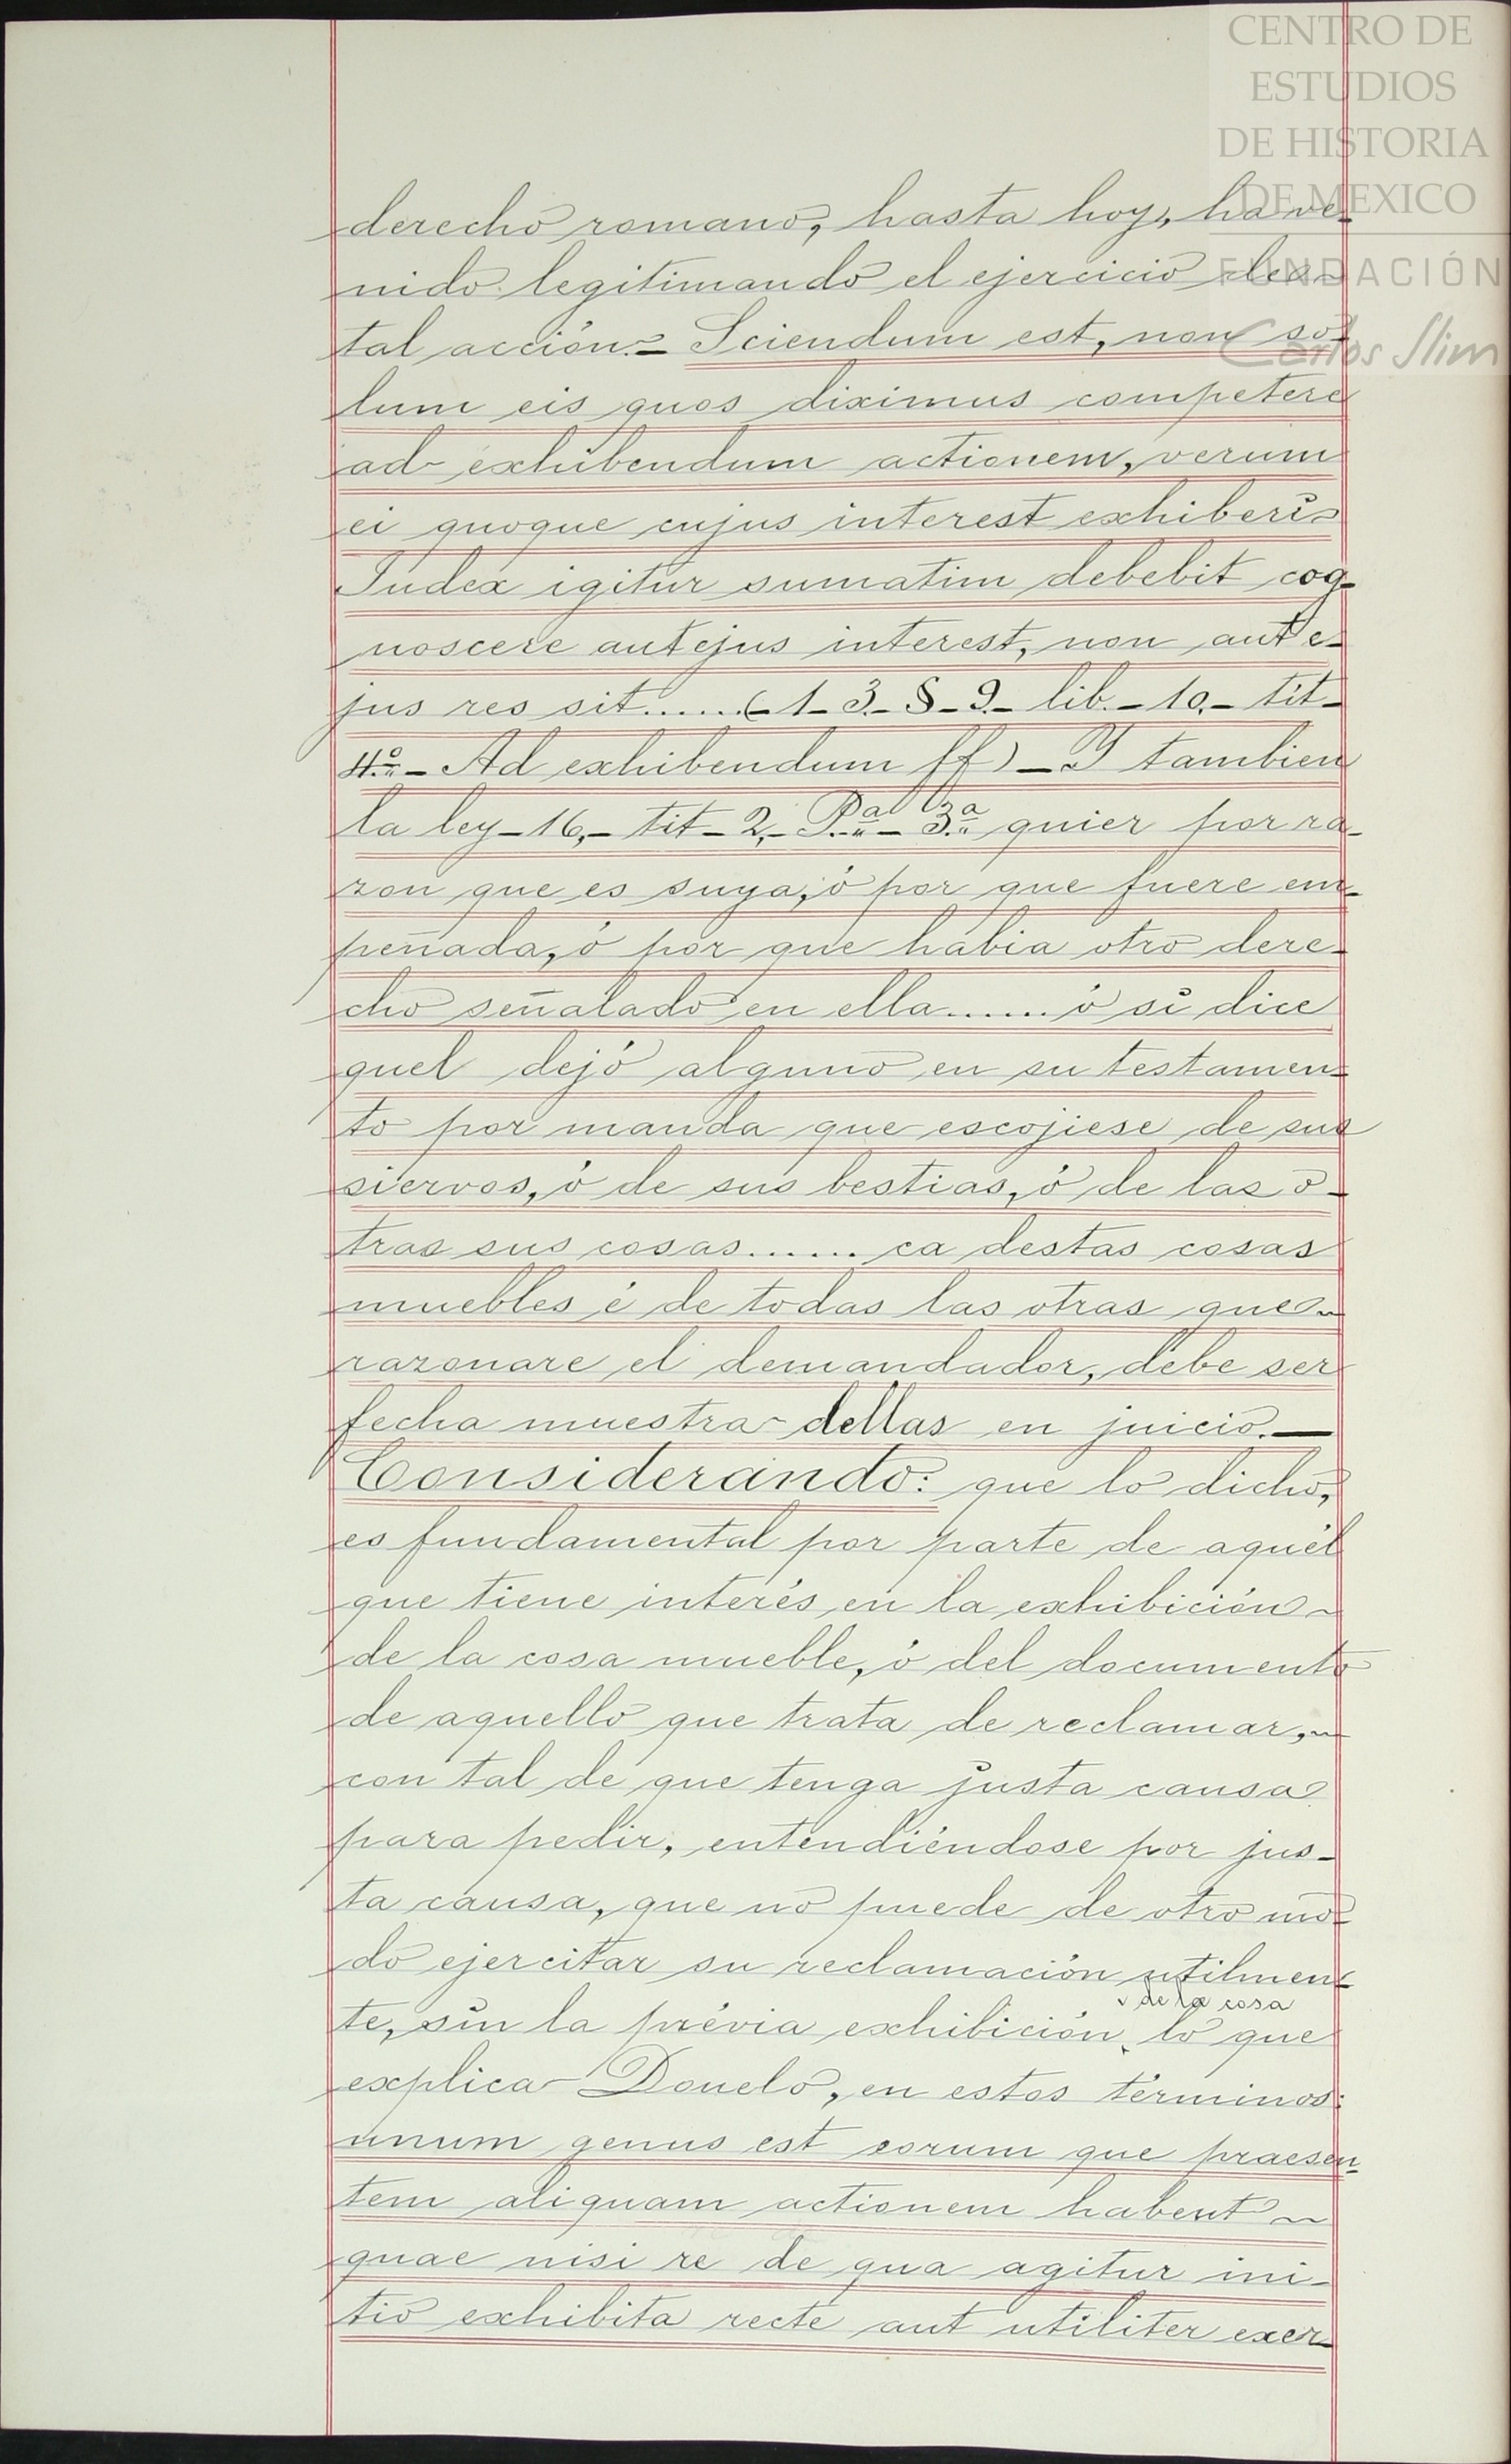 CENTRO DE
ESTUDIOS
DE HISTORIA
DE MEXICO
FUNDACIÓN
Carlos Slim
derecho romano, hasta hoy, ha ve-
nido legitimando el ejercicio de
tal acción.- Sciendum est, non so-
lum eis quos diximus competere
ad exhibendum actionem, verum
ei quoque cujus interest exhiberi
Judex igitur sumatim debebit cog-
noscere aut ejus interest, non aut e-
jus res sit......(-1-3.-§-9.- lib.-10.- tit-
4º.- Ad exhibendum ff)-Y tambien
la ley-16,- tit-2,- P.al-3.a quier por ra-
zon que es suya, ó por que fuere em-
peñada, ó por que habia otro dere-
cho señalado en ella...... ó si dice
quel dejó alguno en su testamen-
to por manda que escojiese de sus
siervos, ó de sus bestias, ó de las o-
tras sus cosas...... ca destas cosas
muebles é de todas las otras que
razonare el demandador, debe ser
fecha muestra dellas en juicio.—
Considerando: que lo dicho,
es fundamental por parte de aquél
que tiene interés en la exhibición
de la cosa mueble, ó del documento
de aquello que trata de reclamar,
con tal de que tenga justa causa
para pedir, entendiéndose por jus-
ta causa, que no puede de otro mo-
do ejercitar su reclamación utilmen-
de la cosa
te, sin la prévia exhibición, lo que
explica Donelo, en estos términos:
unum genus est eorum que praesen-
tem aliquam actionem habent
quae nisi re de qua agitur ini-
tio exhibita recte aut utiliter exer-